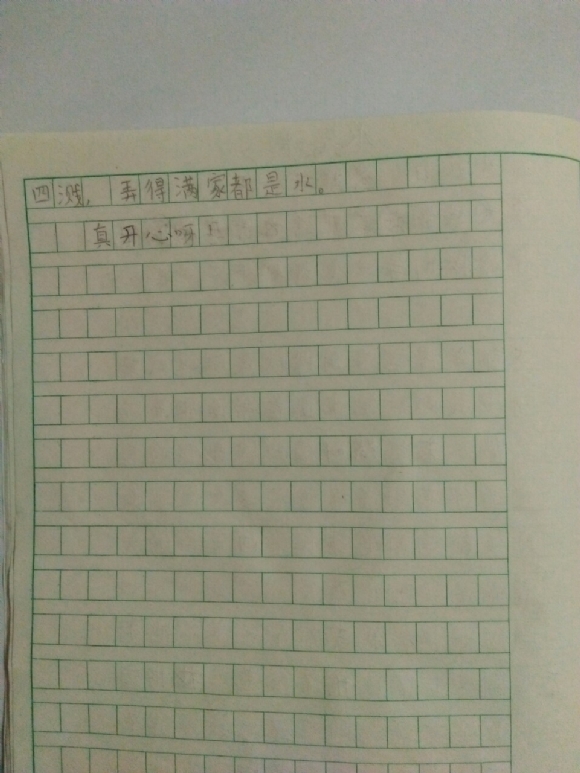 四溅，弄得满家都是水。
真开心呀！